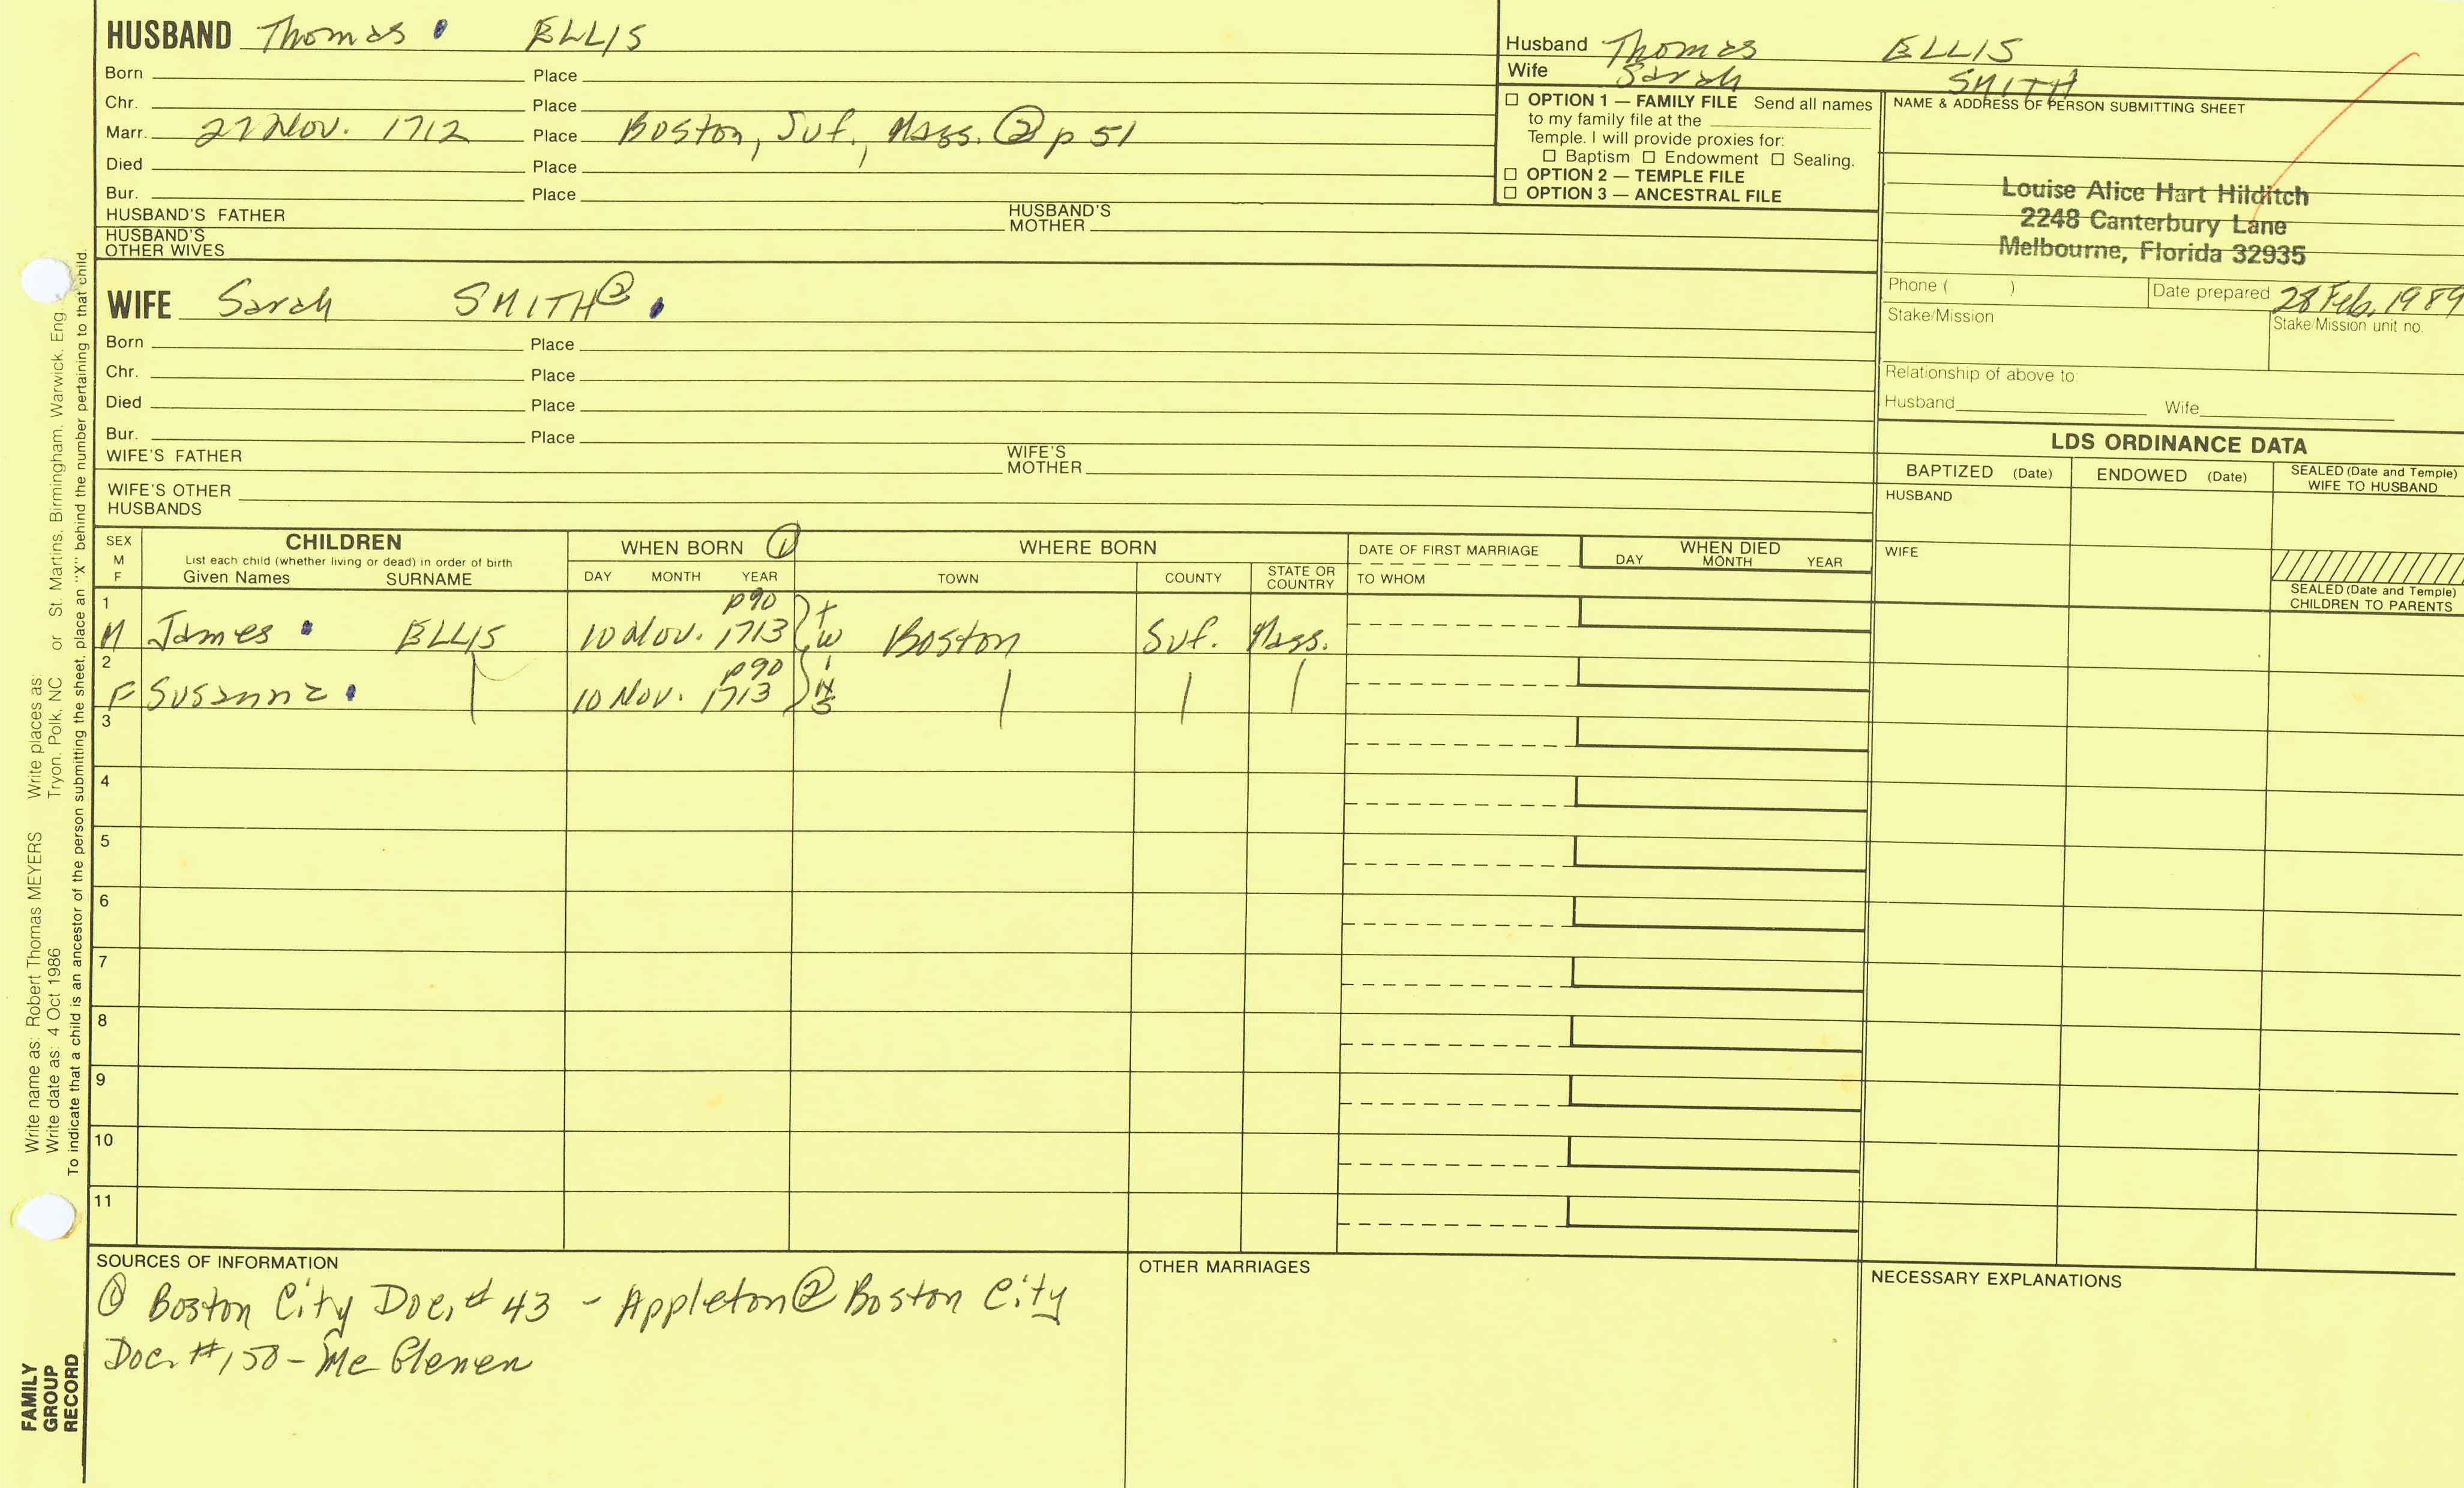 HUSBAND Thomas ELLIS
Born Place
Chr. Place
Marr. 27 Nov. 1712 Place Boston, Suf., Mass. ② p 51
Died Place
Bur. Place
HUSBAND'S FATHER HUSBAND'S MOTHER
HUSBAND'S OTHER WIVES
Husband Thomas ELLIS
Wife Sarah SMITH
☐ OPTION 1 — FAMILY FILE Send all names
to my family file at the
Temple. I will provide proxies for:
☐ Baptism ☐ Endowment ☐ Sealing.
☐ OPTION 2 — TEMPLE FILE
☐ OPTION 3 — ANCESTRAL FILE
NAME & ADDRESS OF PERSON SUBMITTING SHEET
Louise Alice Hart Hilditch
2248 Canterbury Lane
Melbourne, Florida 32935
Phone ( ) Date prepared 28 Feb. 1989
Stake/Mission Stake/Mission unit no.
Relationship of above to:
Husband Wife
WIFE Sarah SMITH ②
Born Place
Chr. Place
Died Place
Bur. Place
WIFE'S FATHER WIFE'S MOTHER
WIFE'S OTHER HUSBANDS
LDS ORDINANCE DATA
BAPTIZED (Date) ENDOWED (Date) SEALED (Date and Temple) WIFE TO HUSBAND
HUSBAND
WIFE
SEALED (Date and Temple) CHILDREN TO PARENTS
SEX M F
CHILDREN
List each child (whether living or dead) in order of birth
Given Names SURNAME
WHEN BORN ①
DAY MONTH YEAR
WHERE BORN
TOWN COUNTY STATE OR COUNTRY
DATE OF FIRST MARRIAGE
TO WHOM
WHEN DIED
DAY MONTH YEAR
1
p90
M James ELLIS 10 Nov. 1713 Boston Suf. Mass.
2
p90
F Susanna 10 Nov. 1713
twins
3
4
5
6
7
8
9
10
11
SOURCES OF INFORMATION
① Boston City Doc. # 43 - Appleton ② Boston City
Doc. #150 - McGlenen
OTHER MARRIAGES
NECESSARY EXPLANATIONS
Write name as: Robert Thomas MEYERS Write places as:
Write date as: 4 Oct 1986 Tryon, Polk, NC or St. Martins, Birmingham, Warwick, Eng.
To indicate that a child is an ancestor of the person submitting the sheet, place an "X" behind the number pertaining to that child.
FAMILY
GROUP
RECORD